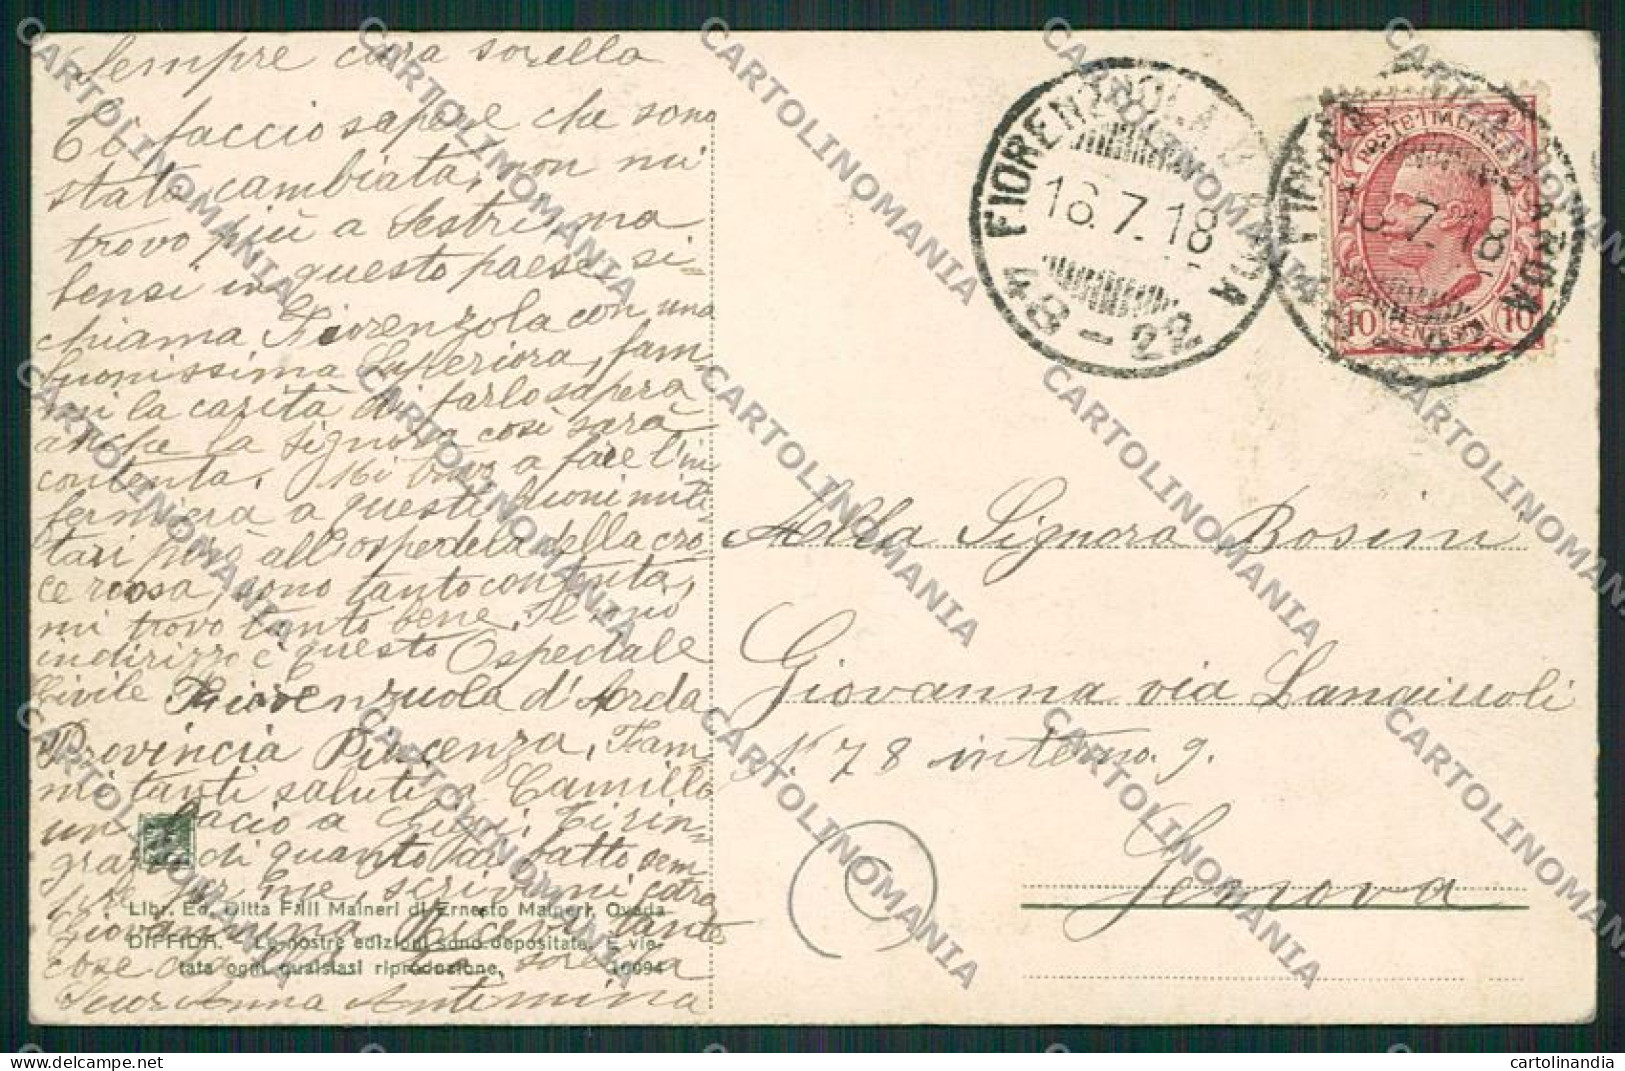 Sempre cara sorella
Ti faccio sapere che sono
stata cambiata, non mi
trovo più a Sestri ma
bensi in questo paese si
chiama Fiorenzola con una
buonissima Superiora, fam-
mi la carità di farlo sapera
anche la Signora così sarà
contenta. Mi trovo a fare l'in
fermiera a questi buoni mili
tari però all'ospedela della cro
ce rossa, sono tanto contenta,
mi trovo tanto bene. Il mio
indirizzo è questo Ospedale
Civile Fiorenzuola d'Arda
Provincia Piacenza. Fam-
mi tanti saluti a Camillo
un bacio a Ti rin-
grazio di quanto hai fatto sem
pre per me, scrivimi cara
Giovannina Ricevi tante
cose cara sorella
Suor Anna Antonnina
Libr. Ed. Ditta F.lli Maineri di Ernesto Maineri, Ovada
DIFFIDA. - Le nostre edizioni sono depositate. È vie-
tata ogni qualsiasi riproduzione. 16094
FIORENZUOLA D'ARDA
16.7.18
48-22
FIORENZUOLA D'ARDA
16.7.18
POSTE ITALIANE
10 CENTESIMI 10
Alla Signora Bosini
Giovanna via
N 78 interno. 9.
Genova
CARTOLINOMANIA
cartolinandia
www.delcampe.net